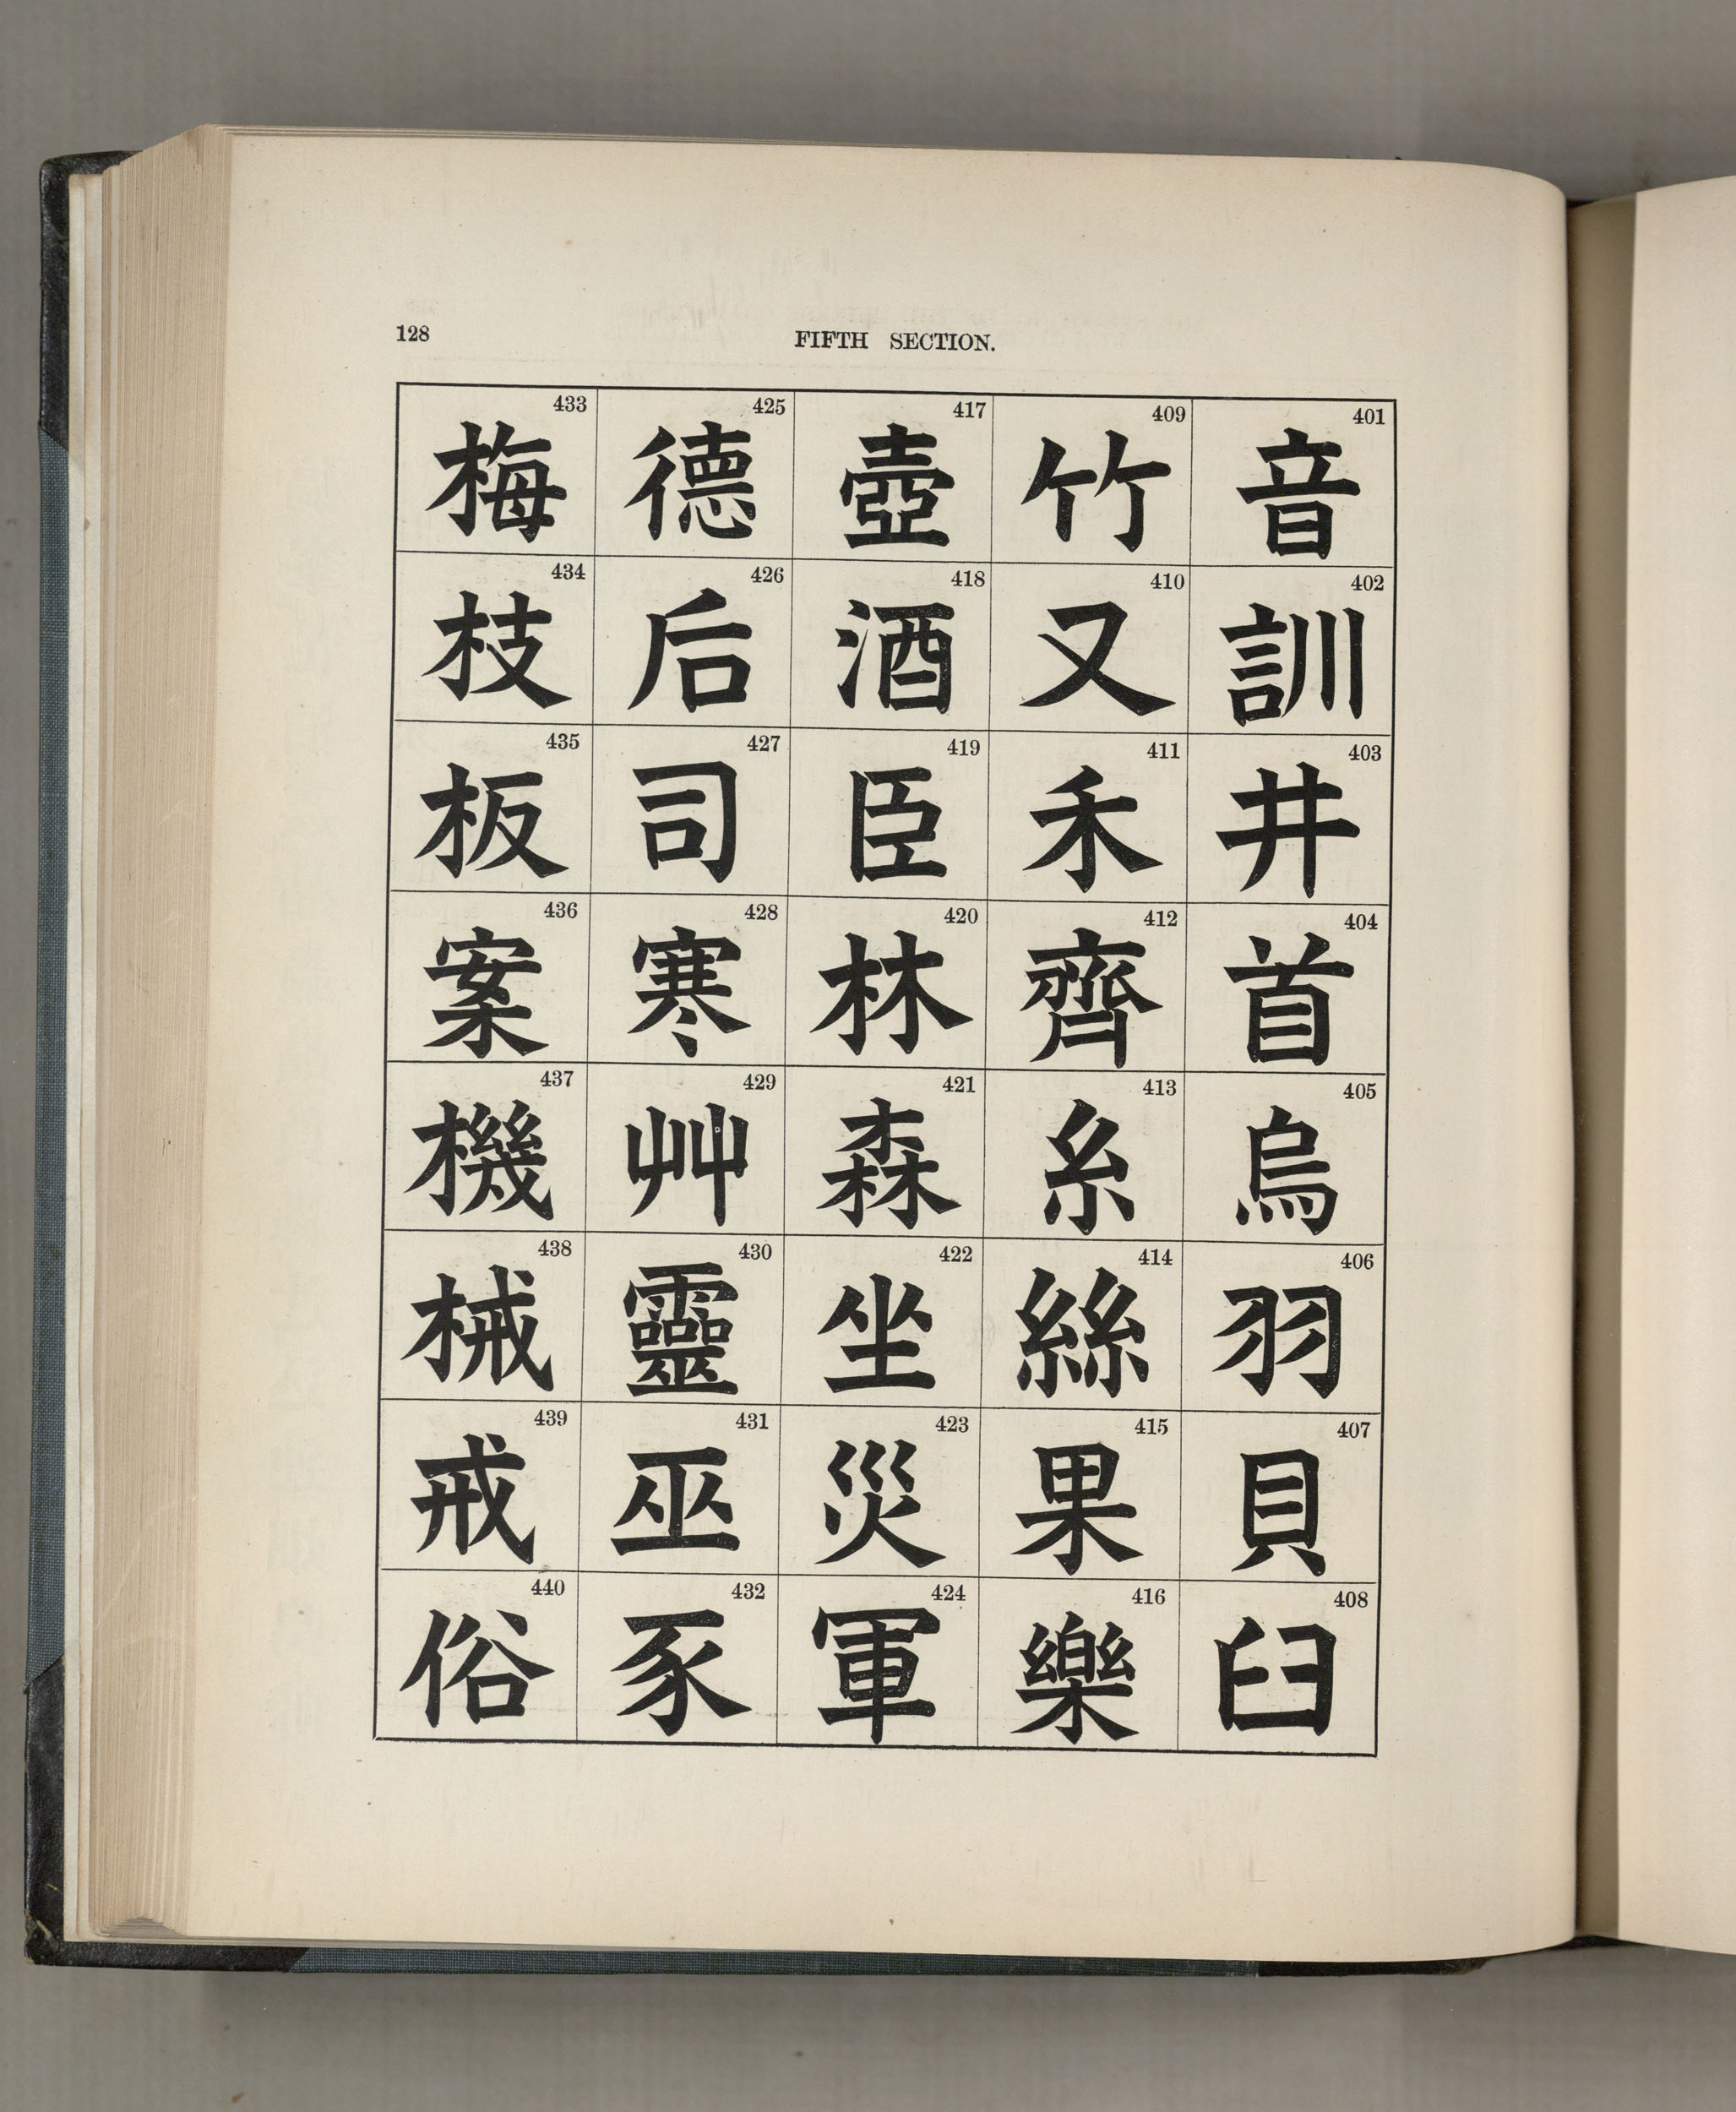 128
FIFTH SECTION.
401
音
402
訓
403
井
404
首
405
烏
406
羽
407
貝
408
臼
409
竹
410
又
411
禾
412
齊
413
糸
414
絲
415
果
416
樂
417
壺
418
酒
419
臣
420
林
421
森
422
坐
423
災
424
軍
425
德
426
后
427
司
428
寒
429
艸
430
靈
431
巫
432
豕
433
梅
434
枝
435
板
436
案
437
機
438
械
439
戒
440
俗